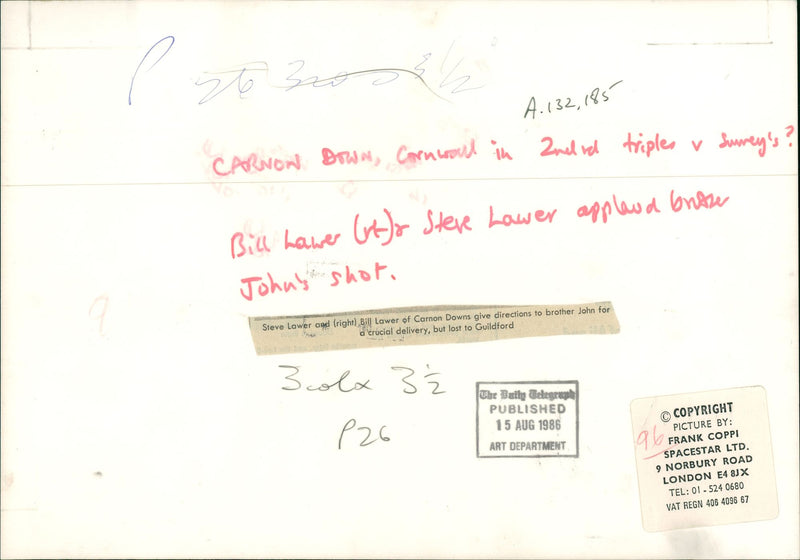 3½
A.132,185
CARNON DOWN, Cornwall in 2nd rd triples v Surrey's?
Bill Lawer (rt) & Steve Lawer applaud brother
John's shot.
Steve Lawer and (right) Bill Lawer of Carnon Downs give directions to brother John for
a crucial delivery, but lost to Guildford
3 col x 3½
P26
The Daily Telegraph
PUBLISHED
15 AUG 1986
ART DEPARTMENT
© COPYRIGHT
PICTURE BY:
96 FRANK COPPI
SPACESTAR LTD.
9 NORBURY ROAD
LONDON E4 8JX
TEL: 01-524 0680
VAT REGN 406 4096 67